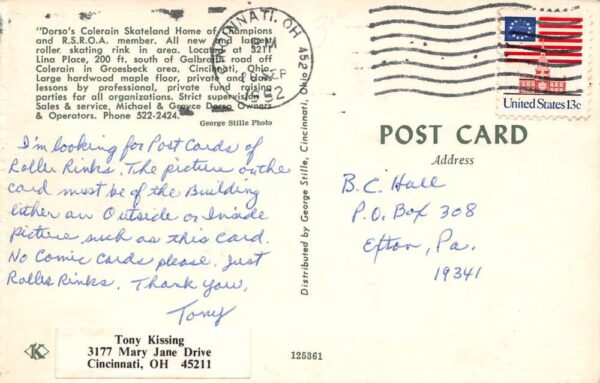 "Dorso's Colerain Skateland Home of Champions
and R.S.R.O.A. member. All new and largest
roller skating rink in area. Located at 3211
Lina Place, 200 ft. south of Galbraith road off
Colerain in Groesbeck area, Cincinnati, Ohio.
Large hardwood maple floor, private and class
lessons by professional, private fund raising
parties for all organizations. Strict supervision
Sales & service, Michael & Grayce Dorso Owners
& Operators. Phone 522-2424.
George Stille Photo
I'm looking for Post Cards of
Roller Rinks. The picture on the
card must be of the Building
either an Outside or Inside
picture such as this card.
No Comic Cards please. Just
Roller Rinks. Thank you,
Tony
K
Tony Kissing
3177 Mary Jane Drive
Cincinnati, OH 45211
Distributed by George Stille, Cincinnati, Ohio
CINCINNATI, OH A52
PM
SEP
United States 13c
POST CARD
Address
B.C. Hall
P.O. Box 308
Exton, Pa.
19341
125361